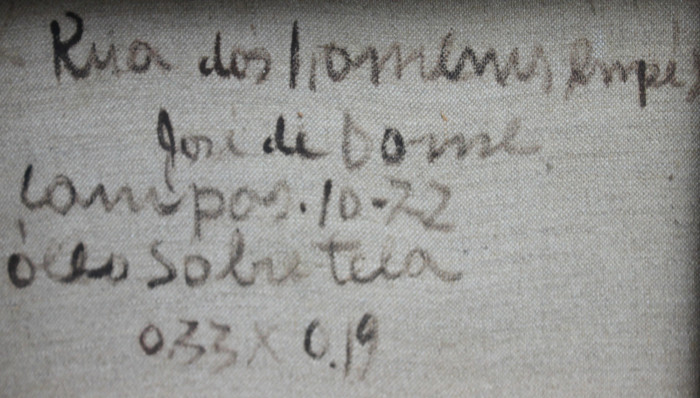 Rua dos homens em pé
José de Dome
Campos. 10-72
óleo sobre tela
0.33 x 0.19